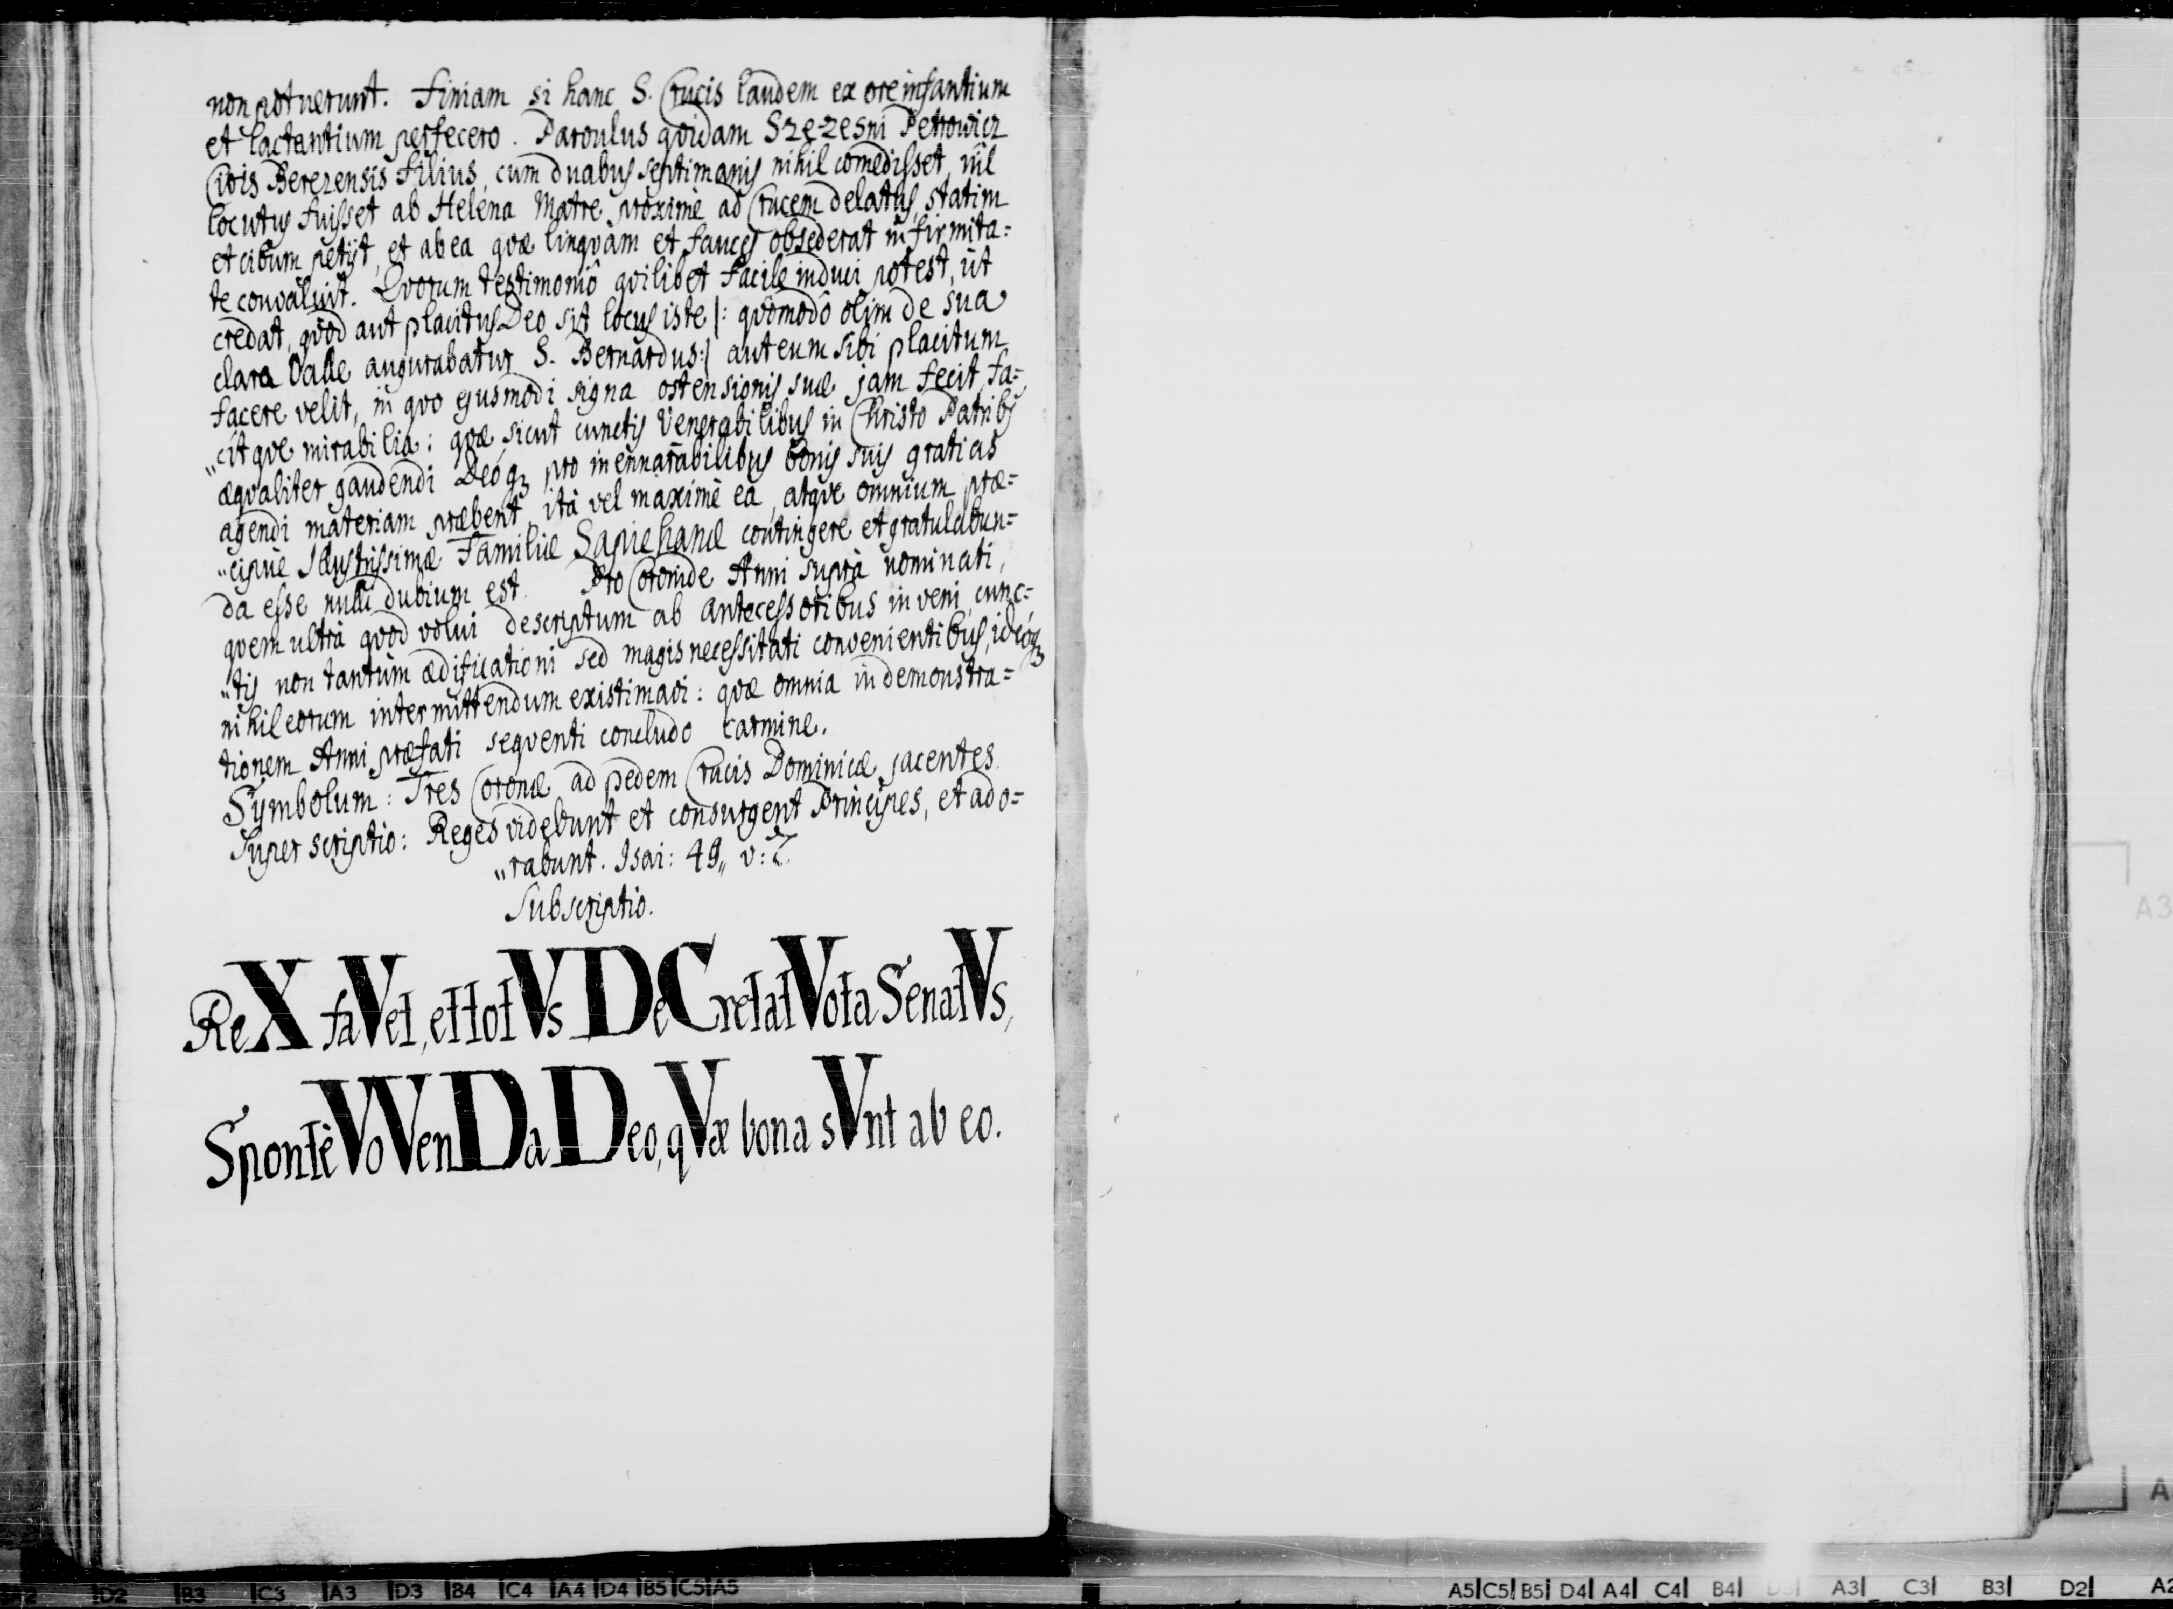 non potuerunt. Finiam si hanc S. Crucis laudem ex ore infantium
et lactantium perfecero. Parvulus qvidam Szczęsni Petrowicz
Civis Berezensis filius, cum duabus septimanis nihil comedisset, nil
locutus fuisset ab Helena Matre proximè ad Crucem delatus, statim
et cibum petijt, et ab ea qvæ lingvam et fauces obsederat infirmita=
te convaluit. Qvorum testimoniô qvilibet facile induci potest, ut
credat, qvod aut placitus Deo sit locus iste |: qvomodô olim de sua
clara Valle augurabatur S. Bernardus:| aut eum sibi placitum
facere velit, in qvo ejusmodi signa ostensionis suæ jam fecit, fa=
„citqve mirabilia: qvæ sicut cunctis Venerabilibus in Christo Patribs
æqvaliter gaudendi Deoq3 pro inennarabilibus bonis suis gratias
agendi materiam præbent, ità vel maximè ea, atqve omnium præ=
„cipuè Illustrissimæ Familiæ Sapiehanæ contingere et gratulabun=
da esse nulli dubium est. Pro Coronide Anni suprà nominati,
qvem ultrà qvod volui descriptum ab Antecessoribus inveni, cunc=
„tis non tantùm ædificationi sed magis necessitati convenientibus, ideoq3
nihil eorum intermittendum existimavi: qvæ omnia in demonstra=
tionem Anni præfati seqventi concludo carmine.
Symbolum: Tres Coronæ ad pedem Crucis Dominicæ jacentes.
Superscriptio: Reges videbunt et consurgent Principes, et ado=
„rabunt. Isai: 49„ v: 7.
Subscriptio.
ReX faVet, et totVs DeCretat Vota SenatVs,
Spontè VoVenDa Deo, qVæ bona sVnt ab eo.
A2 D2 B3 C3 A3 D3 B4 C4 A4 D4 B5 C5 A5
A5 C5 B5 D4 A4 C4 B4 D3 A3 C3 B3 D2 A2
A3
A